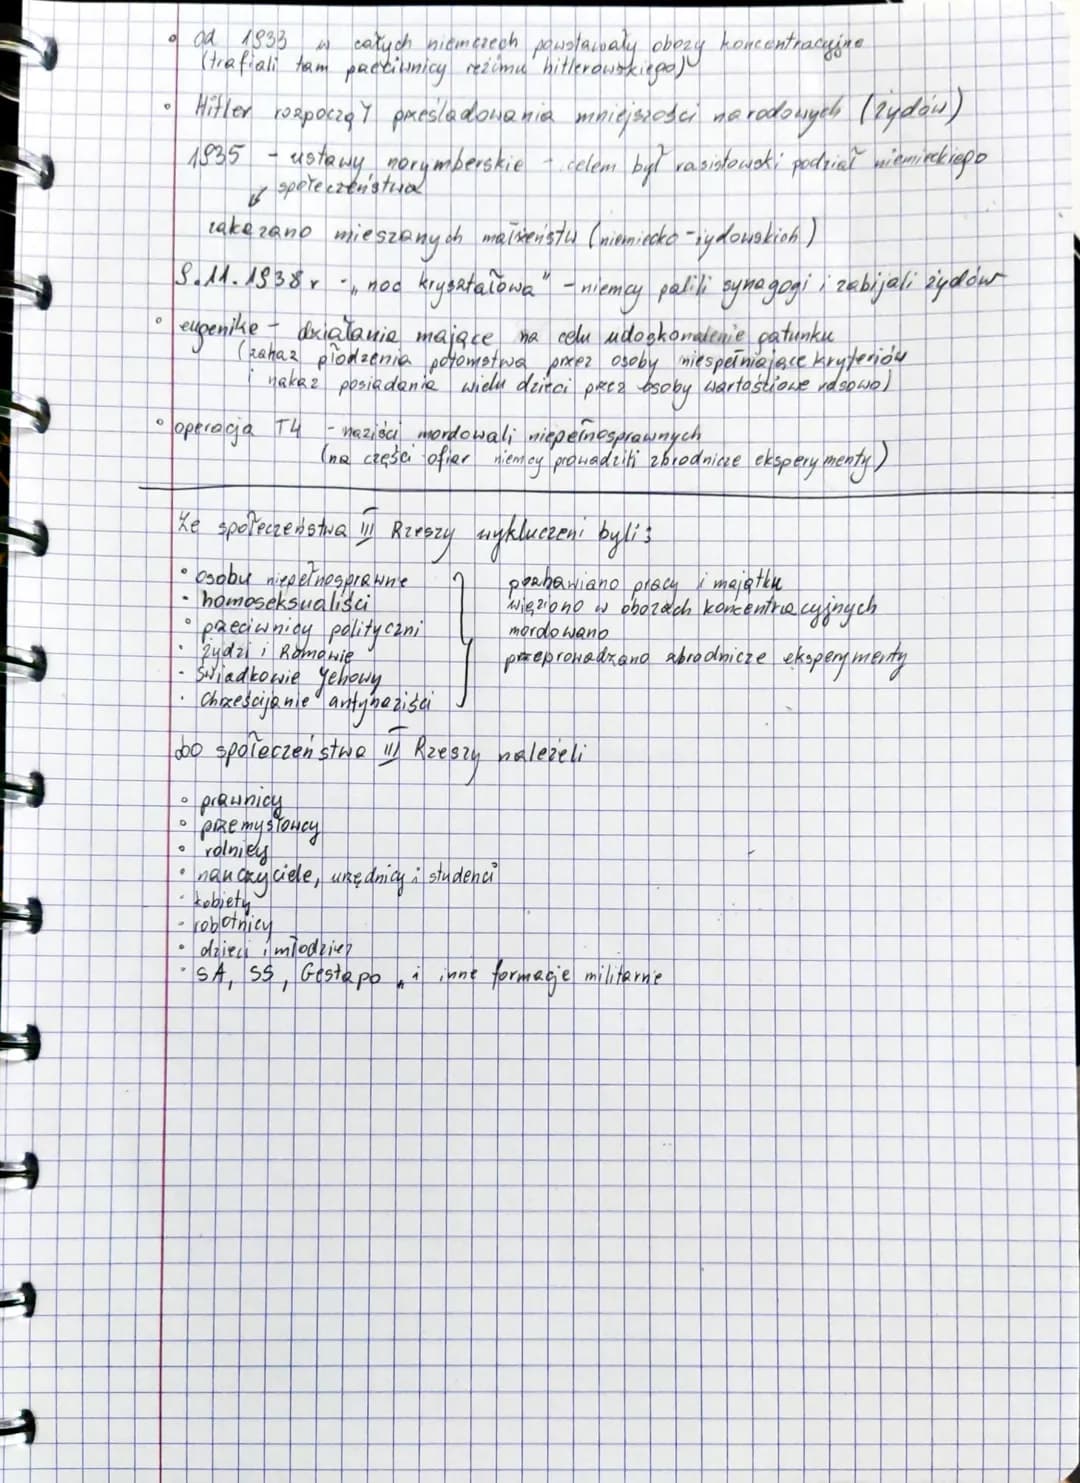 • od 1933 w całych niemczech powstawały obozy koncentracyjne
(trafiali tam przeciwnicy reżimu hitlerowskiego)
• Hitler rozpoczął prześladowania mniejszości narodowych (żydów)
1935 - ustawy norymberskie - celem był rasistowski podział niemieckiego
społeczeństwa
zakazano mieszanych małżeństw (niemiecko-żydowskich)
9.11.1938r - „noc kryształowa" - niemcy palili synagogi i zabijali żydów
• eugenika - działania mające na celu udoskonalenie gatunku
(zakaz płodzenia potomstwa przez osoby niespełniające kryteriów
i nakaz posiadania wielu dzieci przez osoby wartościowe rasowo)
• operacja T4 - naziści mordowali niepełnosprawnych
(na części ofiar niemcy prowadzili zbrodnicze eksperymenty)
Ze społeczeństwa III Rzeszy wykluczeni byli:
• osoby niepełnosprawne
• homoseksualiści
• przeciwnicy polityczni
• żydzi i Romowie
• Świadkowie Jehowy
• Chrześcijanie antynaziści
pozbawiano pracy i majątku
więziono w obozach koncentracyjnych
mordowano
przeprowadzano zbrodnicze eksperymenty
Do społeczeństwa III Rzeszy należeli
• prawnicy
• przemysłowcy
• rolnicy
• nauczyciele, urzędnicy i studenci
• kobiety
• robotnicy
• dzieci i młodzież
• SA, SS, Gestapo i inne formacje militarne